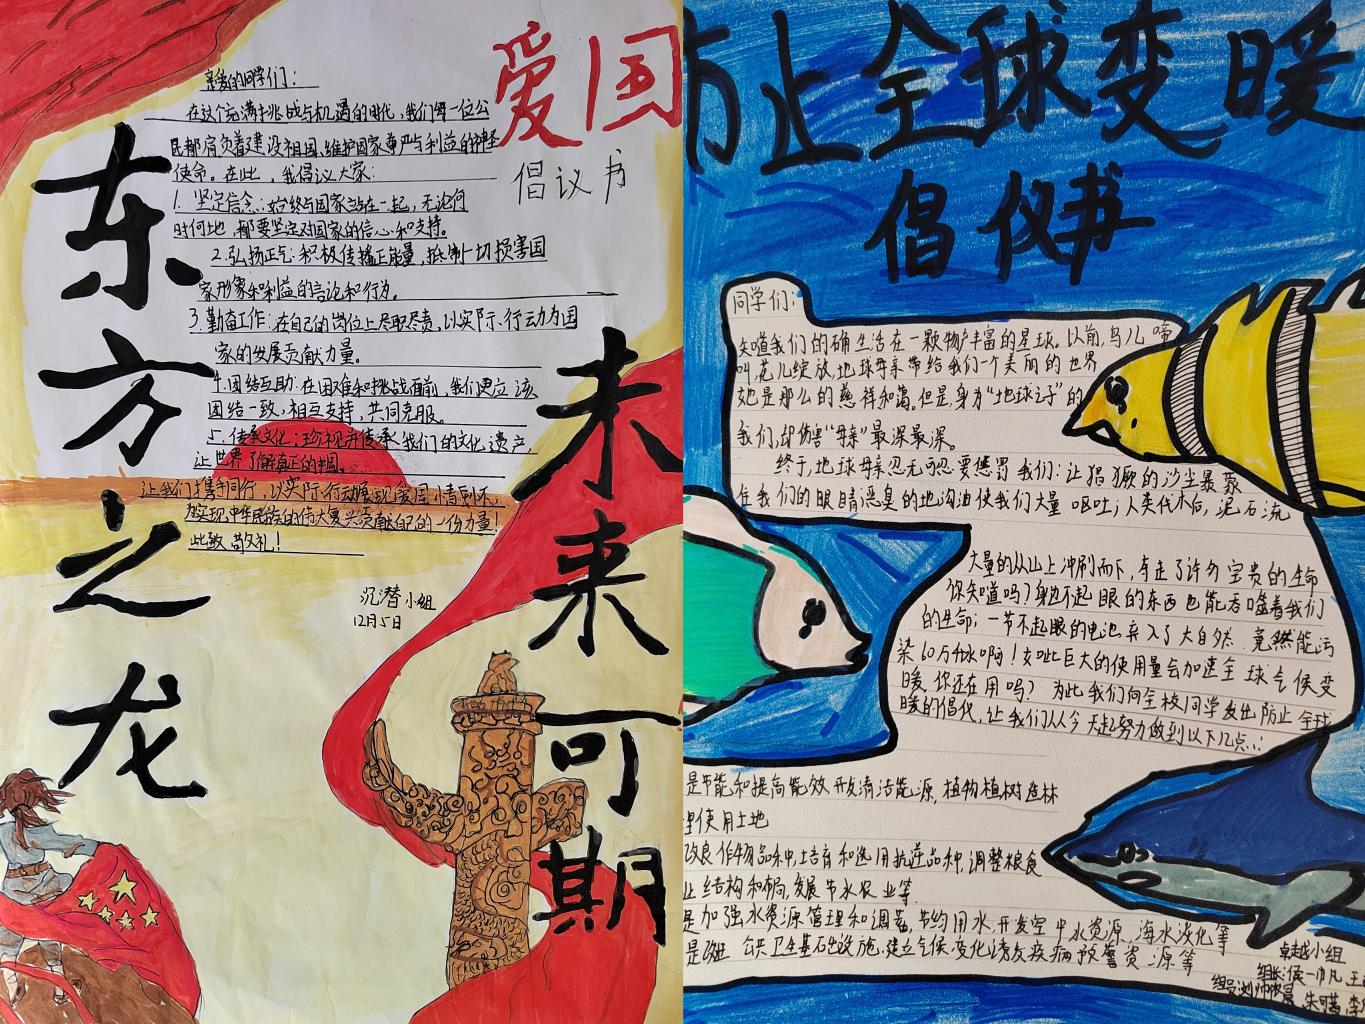 爱国
倡议书
东方之龙
未来可期
亲爱的同学们：
在这个充满挑战与机遇的时代，我们每一位公
民都肩负着建设祖国、维护国家尊严与利益的神圣
使命。在此，我倡议大家：
1. 坚定信念：始终与国家站在一起，无论何
时何地，都要坚定对国家的信心和支持。
2. 弘扬正气：积极传播正能量，抵制一切损害国
家形象和利益的言论和行为。
3. 勤奋工作：在自己的岗位上尽职尽责，以实际行动为国
家的发展贡献力量。
4. 团结互助：在困难和挑战面前，我们更应该
团结一致，相互支持，共同克服。
5. 传承文化：珍视并传承我们的文化遗产，
让世界了解真正的中国。
让我们携手同行，以实际行动展现爱国情
实现中华民族的伟大复兴贡献自己的一份力量！
此致敬礼！
沉潜小组
12月5日
防止全球变暖
倡议书
同学们：
知道我们的确生活在一颗物产丰富的星球。以前，鸟儿啼
叫，花儿绽放，地球母亲带给我们一个美丽的世界
她是那么的慈祥和蔼。但是身为“地球之子”的
我们，却伤害“母亲”最深最深。
终于，地球母亲忍无可忍，要惩罚我们：让猖獗的沙尘暴蒙
住我们的眼睛；恶臭的地沟油使我们大量呕吐；人类伐木后，泥石流
大量的从山上冲刷而下，夺走了许多宝贵的生命
你知道吗？身边不起眼的东西也能吞噬着我们
的生命；一节不起眼的电池弃入了大自然，竟然能污
染60万升水啊！如此巨大的使用量会加速全球气候变
暖，你还在用吗？为此我们向全校同学发出防止全球
暖的倡代，让我们从今天起努力做到以下几点：
是节能和提高能效，开发清洁能源，植物植树造林
理使用土地
改良作物品种，培育和选用抗逆品种，调整粮食
业结构和布局，发展节水农业等
是加强水资源管理和调蓄，节约用水，开发空中水资源、海水淡化等
是改进公共卫生基础设施，建立气候变化诱发疾病预警资源等
卓越小组
组长：侯一帆 王
组员：刘 朱可 李